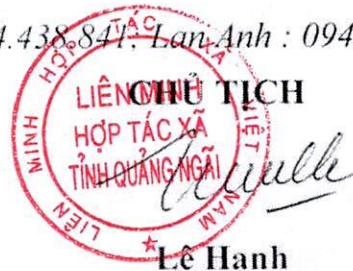 4.438.841, Lan Anh : 094
CHỦ TỊCH
LIÊN MINH HỢP TÁC XÃ VIỆT NAM
LIÊN MINH
HỢP TÁC XÃ
TỈNH QUẢNG NGÃI
Lê Hanh